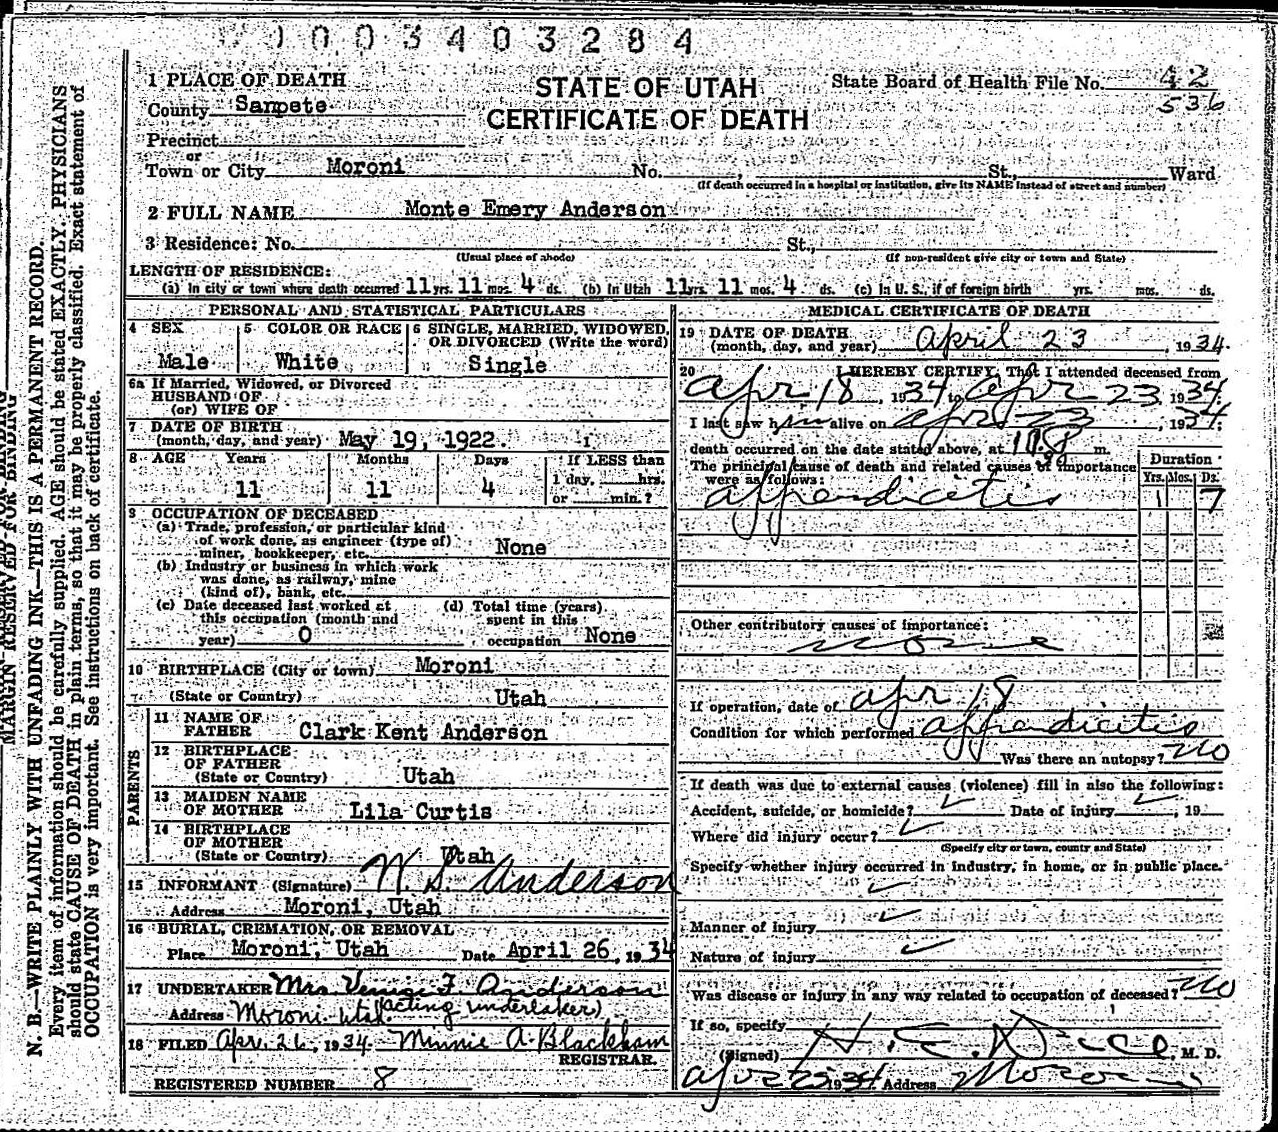 1003403284
1 PLACE OF DEATH
County Sanpete
Precinct
or
Town or City Moroni No. St., Ward
(If death occurred in a hospital or institution, give its NAME instead of street and number)
STATE OF UTAH
CERTIFICATE OF DEATH
State Board of Health File No. 42
536
2 FULL NAME Monte Emery Anderson
3 Residence: No. St.,
(Usual place of abode) (If non-resident give city or town and State)
LENGTH OF RESIDENCE:
(a) In city or town where death occurred 11 yrs. 11 mos. 4 ds. (b) In Utah 11 yrs. 11 mos. 4 ds. (c) In U. S., if of foreign birth yrs. mos. ds.
PERSONAL AND STATISTICAL PARTICULARS
4 SEX 5 COLOR OR RACE 6 SINGLE, MARRIED, WIDOWED,
OR DIVORCED (Write the word)
Male White Single
6a If Married, Widowed, or Divorced
HUSBAND OF
(or) WIFE OF
7 DATE OF BIRTH
(month, day, and year) May 19, 1922.
8 AGE Years Months Days If LESS than
1 day, hrs.
11 11 4 or min.?
9 OCCUPATION OF DECEASED
(a) Trade, profession, or particular kind
of work done, as engineer (type of)
miner, bookkeeper, etc. None
(b) Industry or business in which work
was done, as railway, mine
(kind of), bank, etc.
(c) Date deceased last worked at (d) Total time (years)
this occupation (month and spent in this
year) 0 occupation None
10 BIRTHPLACE (City or town) Moroni
(State or Country) Utah
PARENTS
11 NAME OF
FATHER Clark Kent Anderson
12 BIRTHPLACE
OF FATHER
(State or Country) Utah
13 MAIDEN NAME
OF MOTHER Lila Curtis
14 BIRTHPLACE
OF MOTHER
(State or Country) Utah
15 INFORMANT (Signature) N. S. Anderson
Address Moroni, Utah
16 BURIAL, CREMATION, OR REMOVAL
Place Moroni, Utah Date April 26, 1934
17 UNDERTAKER Mrs Venice F. Anderson
Address Moroni. Utah (acting undertaker)
18 FILED Apr. 26, 1934. Minnie A. Blackham
REGISTRAR.
REGISTERED NUMBER 8
MEDICAL CERTIFICATE OF DEATH
19 DATE OF DEATH
(month, day, and year) April 23, 1934.
20 I HEREBY CERTIFY, That I attended deceased from
Apr 18, 1934 to Apr 23, 1934.
I last saw him alive on Apr 23, 1934;
death occurred on the date stated above, at m.
The principal cause of death and related causes of importance
were as follows:
Duration
Yrs. Mos. Ds.
appendicitis 7
Other contributory causes of importance:
none
If operation, date of apr 18
Condition for which performed appendicitis
Was there an autopsy? no
If death was due to external causes (violence) fill in also the following:
Accident, suicide, or homicide? Date of injury , 19
Where did injury occur?
(Specify city or town, county and State)
Specify whether injury occurred in industry, in home, or in public place.
Manner of injury
Nature of injury
Was disease or injury in any way related to occupation of deceased? no
If so, specify
(Signed) H. E. Dice, M. D.
Apr 25 1934 Address Moroni
MARGIN RESERVED FOR BINDING
N. B.—WRITE PLAINLY WITH UNFADING INK—THIS IS A PERMANENT RECORD.
Every item of information should be carefully supplied. AGE should be stated EXACTLY. PHYSICIANS
should state CAUSE OF DEATH in plain terms, so that it may be properly classified. Exact statement of
OCCUPATION is very important. See instructions on back of certificate.